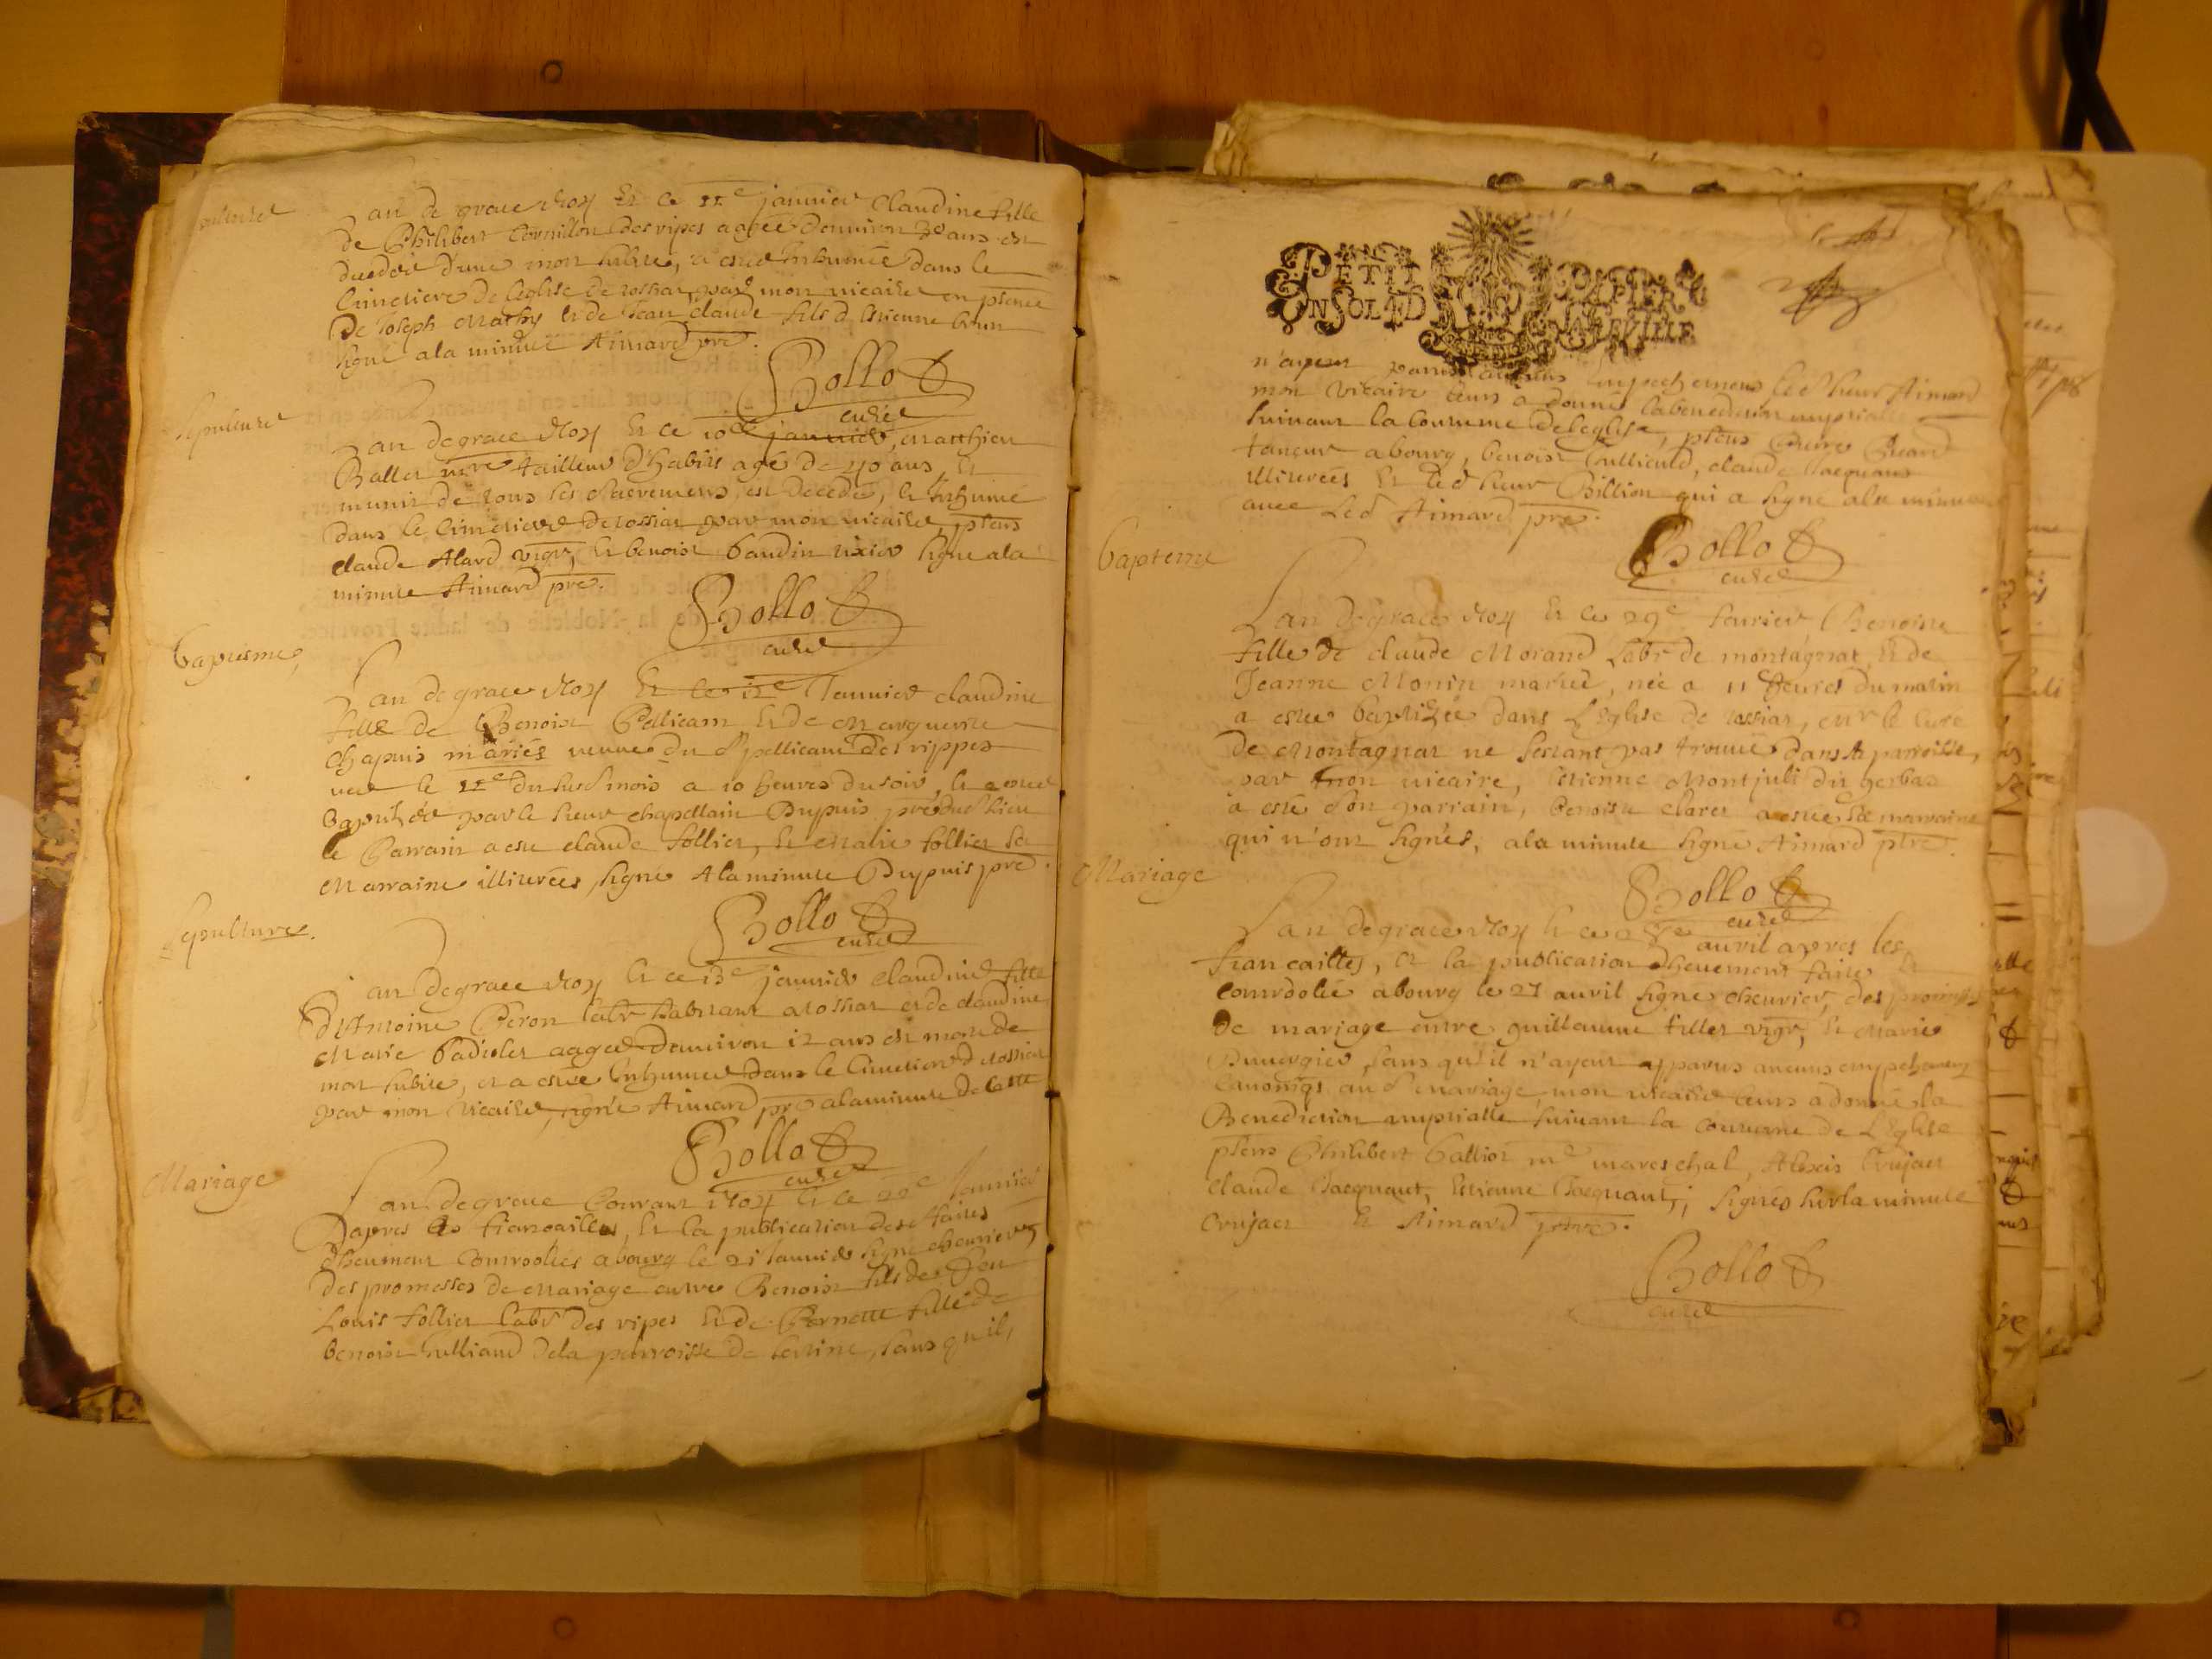 Sepulture
an de grace 1704 Et ce 11e janvier Claudine fille
de Philibert Cornillon des vipes agée denviron 30 ans est
decedée d'une mort subite, a esté Inhumée dans le
Cimetiere de l'eglise de par mon vicaire en pbnce
de Joseph Mathy et de Jean claude fils d'Estienne brun
signé ala minute Aimard pre.
Bollo
curé
Sepulture
an de grace 1704 Et ce 10e janvier, Matthieu
Ballet mre tailleur d'habits agé de 40 ans, Et
munit de tous les Sacremens, est decedé, Et Inhumé
dans le Cimetiere de par mon vicaire, pbens
claude Alard vigr, Et benoist baudin signé ala
minute Aimard pre.
Bollo
curé
baptesme,
Lan de grace 1704 Et le 12e Janvier claudine
fille de Benoist Pellicam Et de Marguerite
Chapuis mariés venue du d pellicam des vippes
née le 11e du susd mois a 10 heures du soir, Et a estée
baptisée par le sieur chapellain Dupuis pre dud lieu
le Parrain a esté claude follier, Et Marie follier sa
Marraine illiterées, signé Ala minute Dupuis pre.
Bollo
curé
Sepulture.
an de grace 1704 Et ce 13e janvier claudine fille
d'Antoine Peron labr habitant a et de claudine
Marie badolet aagée denviron 12 ans est morte de
mort subite, et a estée Inhumée dans le Cimetiere d
par mon vicaire, signé Aimard pre ala minute de
Bollo
curé
Mariage
Lan de grace Courant 1704 Et le 22e Janvier
D'apres les fiançailles, Et la publication faites
d'heument Controolées a bourg le 21 Janvier signé chevrier,
des promesses de Mariage entre Benoist fils de feu
Louis follier labr des vipes Et de Pernette fille de
benoist de la parroisse de , sans qu'il,
PETIT PAPIER
UN SOL 4 D LA FEUILLE
n'ayent parus aucuns Impechemens led sieur Aimard
mon vicaire leurs a donné la benediction nuptialle
suivant la coutume de l'eglise, pbens Picard
taneur a bourg, benoist , claude Jacquant
illiterées Et led sieur Billion qui a signé ala minute
avec Led Aimard pre.
Bollo
curé
bapteme
Lan de grace 1704 Et le 29e favrier Benoiste
fille de claude Morand Labr de montagnat, Et de
Jeanne Monin mariés, née a 11 heures du matin
a estée baptisée dans L'Eglise de , Mr le Curé
de Montagnat ne s'estant pas trouvé dans sa parroisse,
par mon vicaire, Estienne Montjuli dit gerbas
a esté son parrain, benoiste claret a estée sa marraine
qui n'ont signés, ala minute signé Aimard ptre.
Bollo
curé
Mariage
Lan de grace 1704 Et ce avril apres les
fiancailles, Et la publication d'heuement faites Et
controolée a bourg le 27 avril signé chevrier, des promesses
de mariage entre guillaume fillet vigr, Et Marie
Duvergier, sans qu'il n'ayent apparus aucuns empechemens
Canoniqs aud mariage mon vicaire leurs a donné la
Benediction nuptialle suivant la coutume de L'Eglise
pbens Philibert Gallion me mareschal, Alexis Crujat
claude Jacquant, Estienne Jacquant, signés sur la minute
Crujat Et Aimard ptre.
Bollo
curé